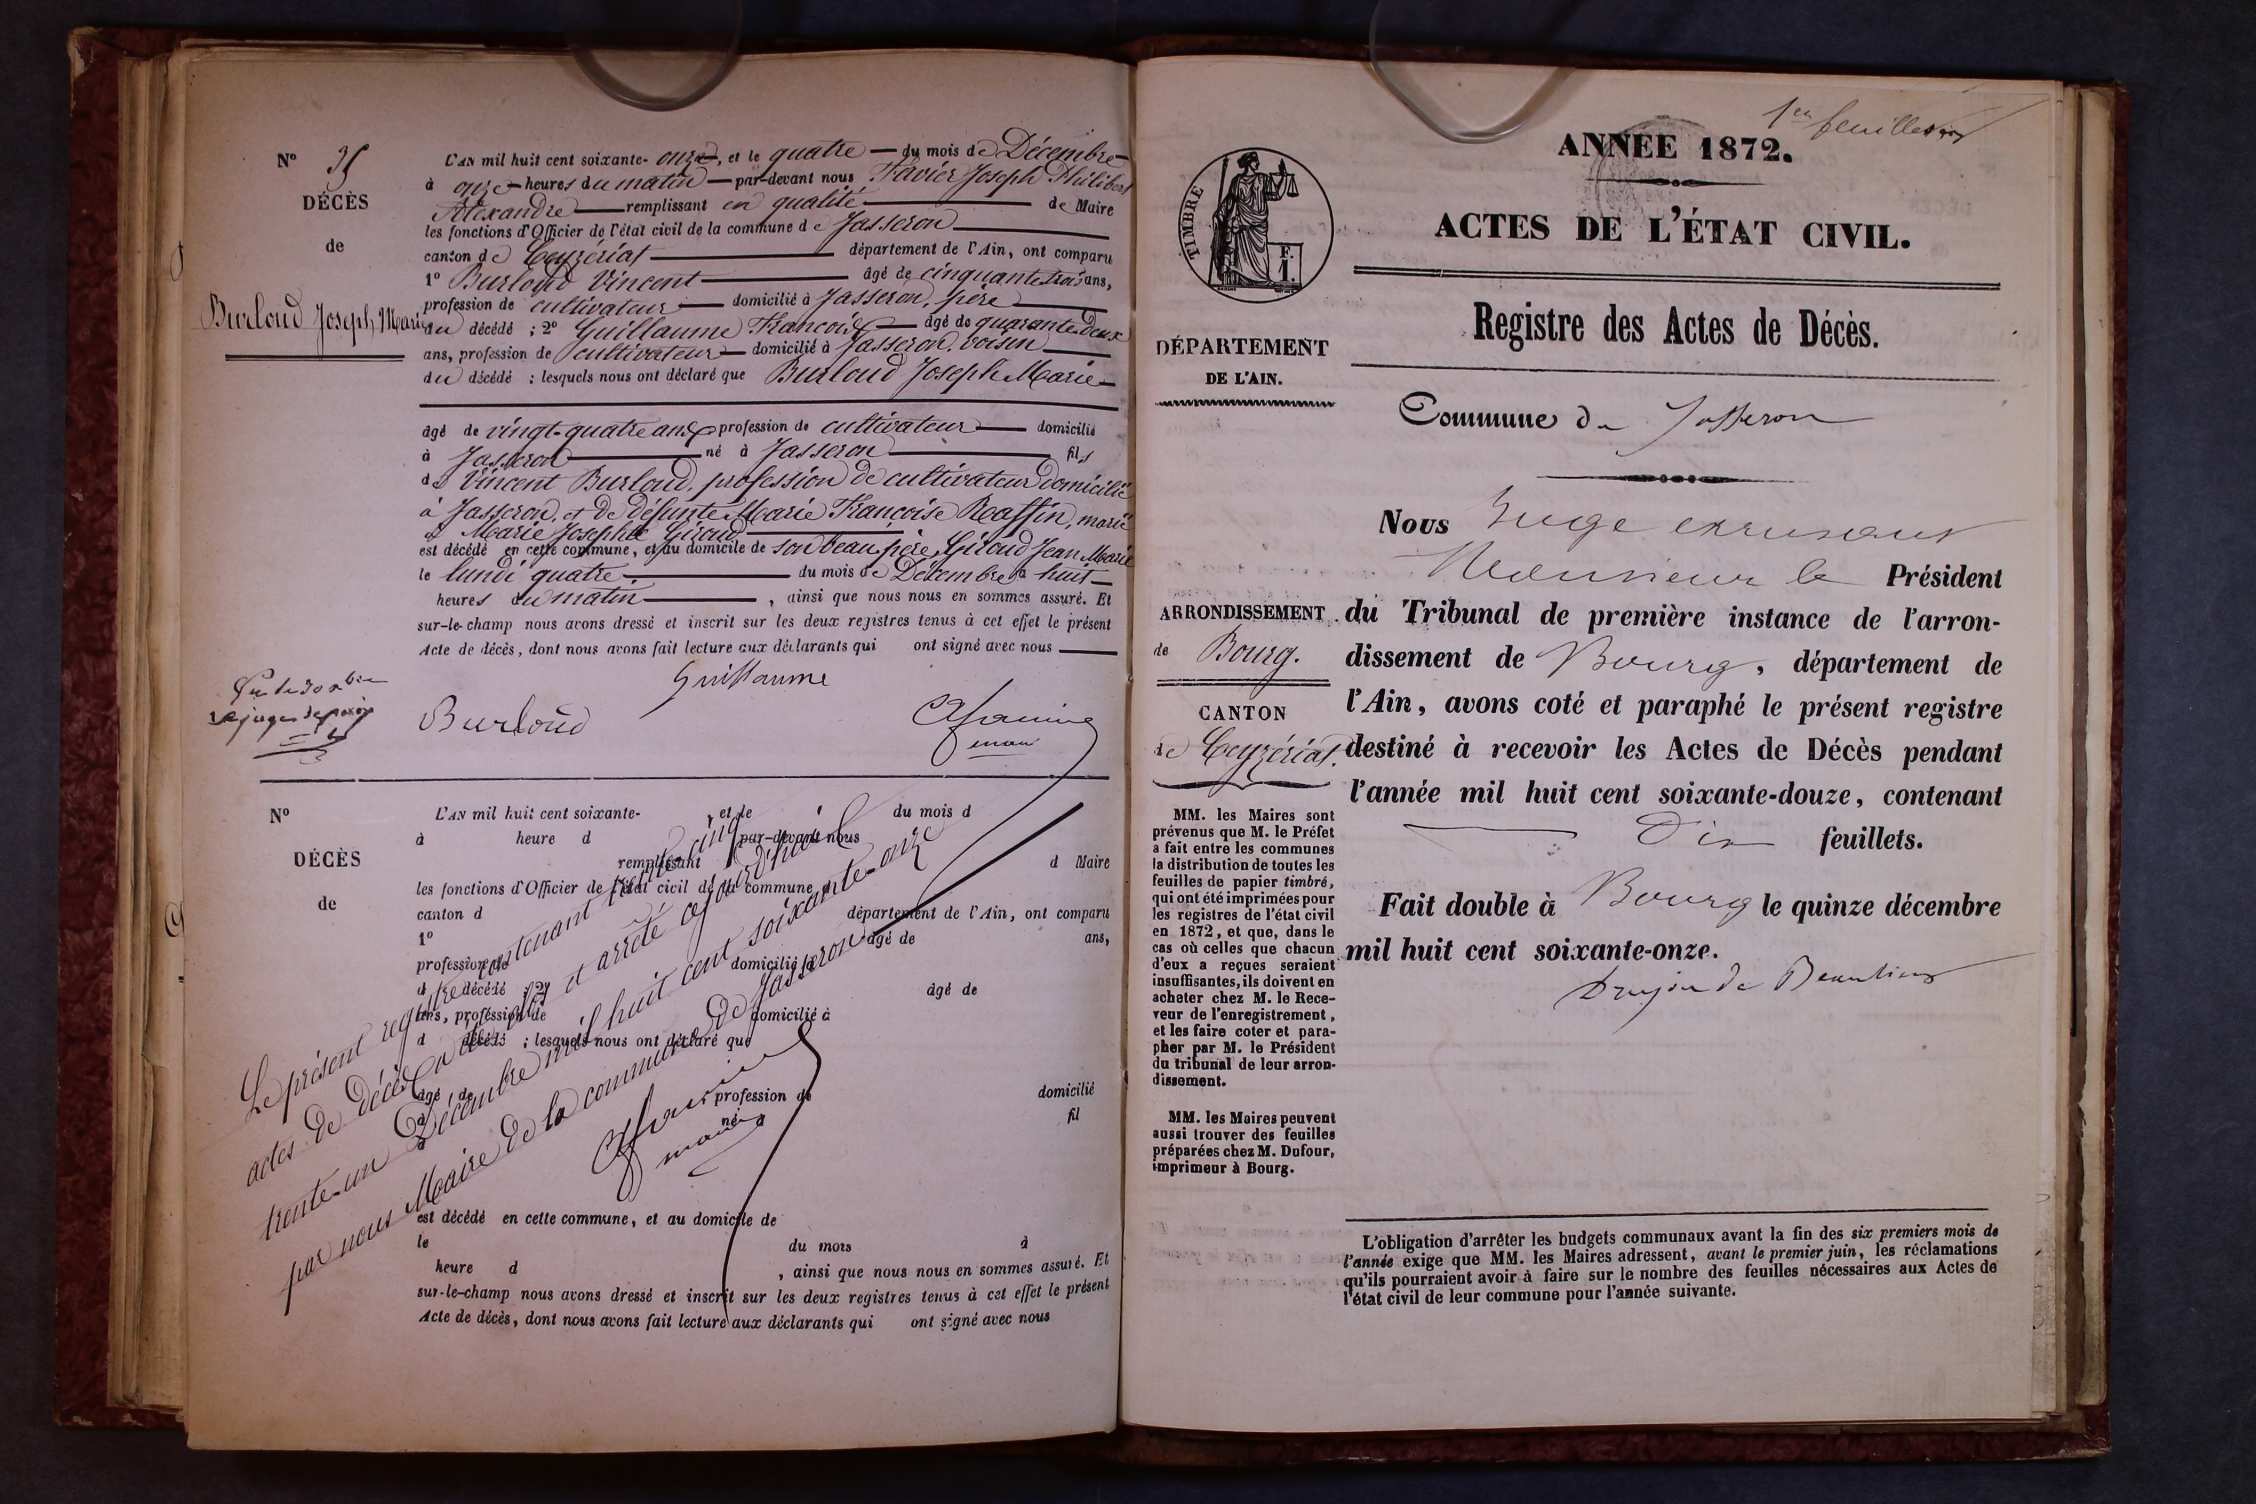 N° 35
DÉCÈS
de
Burloud Joseph, Marie
L'AN mil huit cent soixante-onze, et le quatre — du mois de Décembre —
à onze — heures du matin — par-devant nous Favier Joseph Philibert
Alexandre — remplissant en qualité — de Maire
les fonctions d'Officier de l'état civil de la commune de Jasseron —
canton de Ceyzériat — département de l'Ain, ont comparu
1° Burloud Vincent — âgé de cinquante trois ans,
profession de cultivateur — domicilié à Jasseron, père —
du décédé ; 2° Guillaume François — âgé de quarante deux
ans, profession de cultivateur — domicilié à Jasseron, voisin —
du décédé ; lesquels nous ont déclaré que Burloud Joseph Marie —
âgé de vingt-quatre ans, profession de cultivateur — domicilié
à Jasseron — né à Jasseron — fils
de Vincent Burloud, profession de cultivateur domicilié
à Jasseron, et de défunte Marie Françoise Raffin, marié
à Marie Josephte Giroud —
est décédé en cette commune, et au domicile de son beau-père, Giroud Jean Marie
le lundi quatre — du mois de Décembre à huit —
heures du matin —, ainsi que nous nous en sommes assuré. Et
sur-le-champ nous avons dressé et inscrit sur les deux registres tenus à cet effet le présent
Acte de décès, dont nous avons fait lecture aux déclarants qui ont signé avec nous —
Guillaume
Burloud
maire
N°
DÉCÈS
de
L'AN mil huit cent soixante- , et le du mois d
à heure d par-devant nous
remplissant d Maire
les fonctions d'Officier de l'état civil de la commune d
canton d département de l'Ain, ont comparu
1° âgé de ans,
profession de domicilié à
d décédé ; 2° âgé de
ans, profession de domicilié à
d décédé ; lesquels nous ont déclaré que
âgé de profession de domicilié
à né à fil
d
est décédé en cette commune, et au domicile de
le du mois à
heure d , ainsi que nous nous en sommes assuré. Et
sur-le-champ nous avons dressé et inscrit sur les deux registres tenus à cet effet le présent
Acte de décès, dont nous avons fait lecture aux déclarants qui ont signé avec nous
Le présent registre contenant trente-cinq
actes de décès a été clos et arrêté aujourd'hui
trente-un Décembre mil huit cent soixante-onze
par nous Maire de la commune de Jasseron
maire
1er feuillet
ANNÉE 1872.
ACTES DE L'ÉTAT CIVIL.
Registre des Actes de Décès.
TIMBRE
F.
1.
DÉPARTEMENT
DE L'AIN.
ARRONDISSEMENT
de Bourg.
CANTON
de Ceyzériat.
MM. les Maires sont
prévenus que M. le Préfet
a fait entre les communes
la distribution de toutes les
feuilles de papier timbré,
qui ont été imprimées pour
les registres de l'état civil
en 1872, et que, dans le
cas où celles que chacun
d'eux a reçues seraient
insuffisantes, ils doivent en
acheter chez M. le Rece-
veur de l'enregistrement,
et les faire coter et para-
pher par M. le Président
du tribunal de leur arron-
dissement.
MM. les Maires peuvent
aussi trouver des feuilles
préparées chez M. Dufour,
imprimeur à Bourg.
Commune de Jasseron
Nous Juge
Monsieur le Président
du Tribunal de première instance de l'arron-
dissement de Bourg, département de
l'Ain, avons coté et paraphé le présent registre
destiné à recevoir les Actes de Décès pendant
l'année mil huit cent soixante-douze, contenant
— Dix feuillets.
Fait double à Bourg le quinze décembre
mil huit cent soixante-onze.
Drujon de Beaulieu
L'obligation d'arrêter les budgets communaux avant la fin des six premiers mois de
l'année exige que MM. les Maires adressent, avant le premier juin, les réclamations
qu'ils pourraient avoir à faire sur le nombre des feuilles nécessaires aux Actes de
l'état civil de leur commune pour l'année suivante.